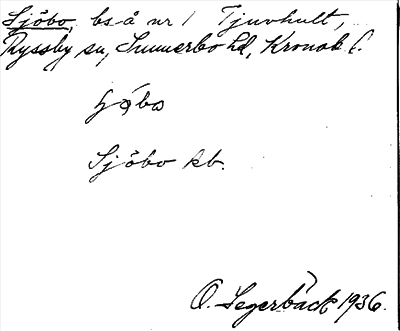 Sjöbo, bs å nr 1 Tjuvhult,
Ryssby sn, Sunnerbo hd, Kronob l.
Sjöbo kb.
O. Segerbäck 1936.